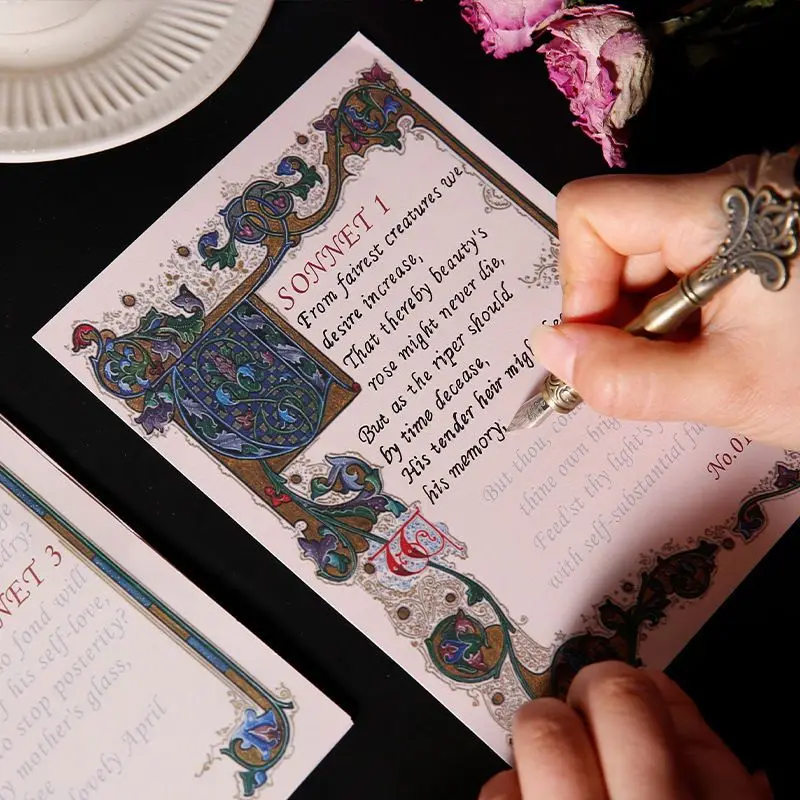 SONNET 1
From fairest creatures we
desire increase,
That thereby beauty's
rose might never die,
But as the riper should
by time decease,
His tender heir might
his memory,
But thou,
thine own
Feed'st thy light's
with self-substantial
No.01
NET 3
fond will
his self-love,
stop posterity?
mother's glass,
lovely April